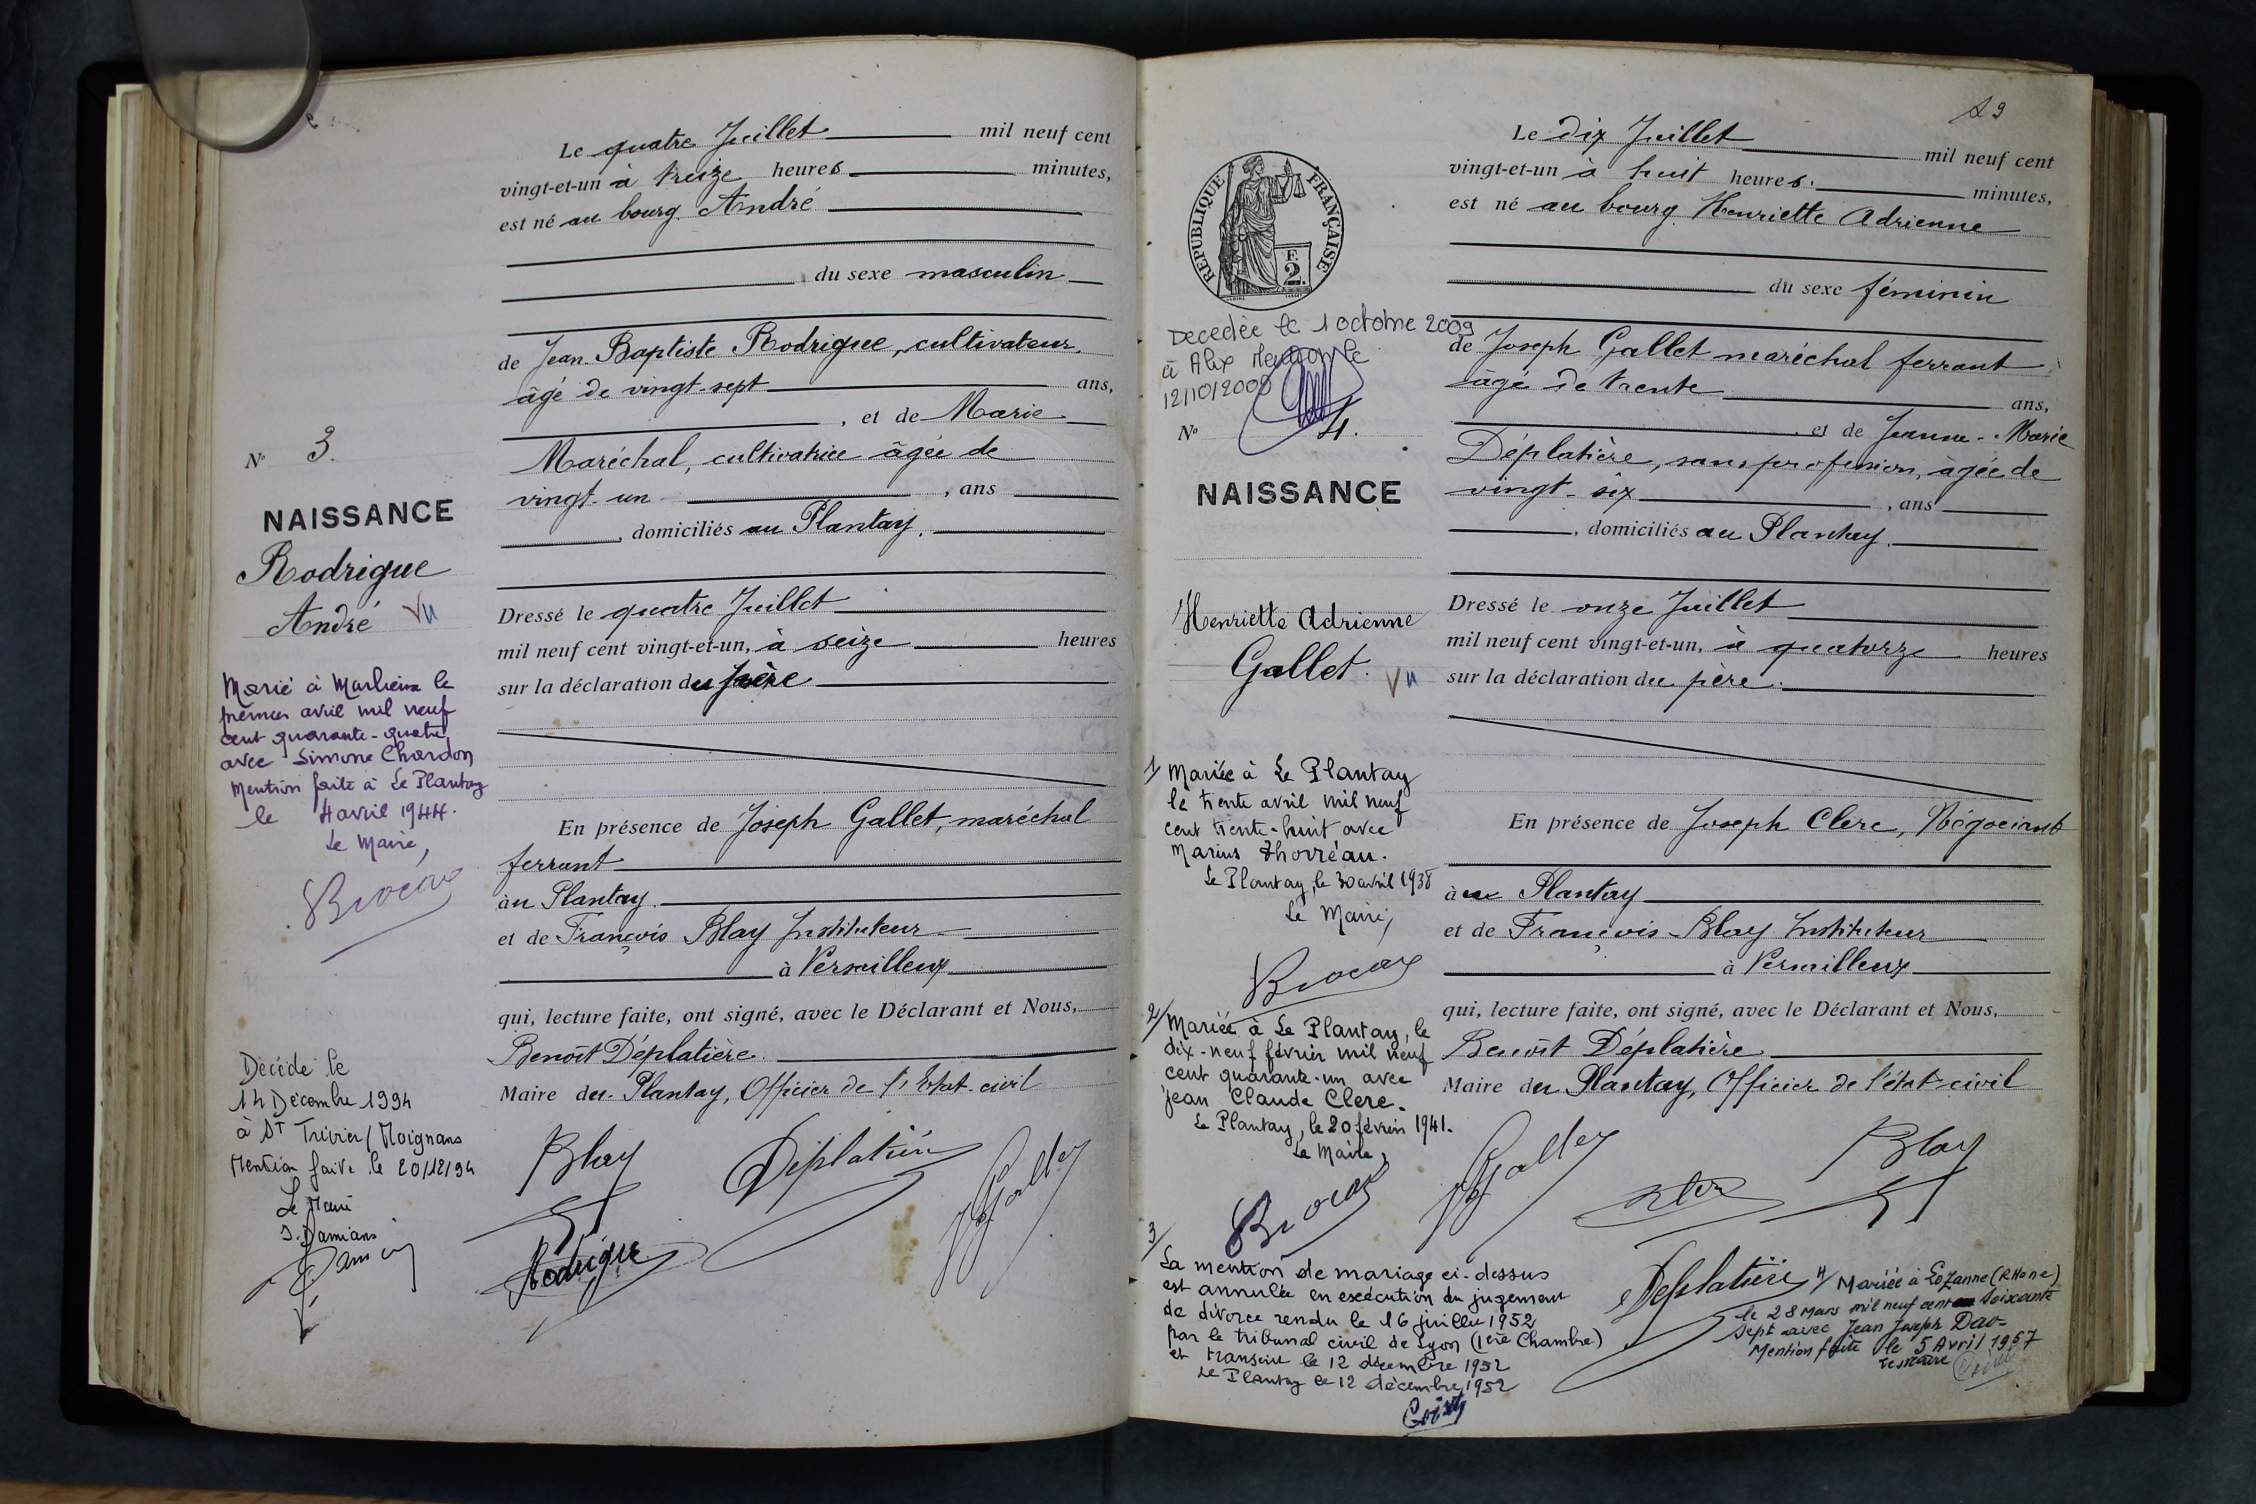 Le quatre Juillet mil neuf cent
vingt-et-un à treize heures minutes,
est né au bourg André
du sexe masculin
de Jean Baptiste Rodrigue, cultivateur,
âgé de vingt-sept ans,
, et de Marie
Maréchal, cultivatrice âgée de
vingt-un , ans
, domiciliés au Plantay.
Dressé le quatre Juillet
mil neuf cent vingt-et-un, à seize heures
sur la déclaration du père
En présence de Joseph Gallet, maréchal
ferrant
àu Plantay.
et de François Blay Instituteur
à Versailleux
qui, lecture faite, ont signé, avec le Déclarant et Nous,
Benoît Déplatière.
Maire du Plantay, Officier de l'état-civil
Blay Déplatière JGallet
Rodrigue
No 3.
NAISSANCE
Rodrigue
André Vu
Marié à Marlieux le
premier avril mil neuf
cent quarante-quatre
avec Simone Chardon
Mention faite à Le Plantay
le 4 avril 1944.
Le Maire,
Brocard
Décédé le
14 Décembre 1994
à St Trivier/Moignans
Mention faite le 20/12/94
Le Maire
J. Damians
29
Le dix Juillet mil neuf cent
vingt-et-un à huit heures. minutes,
est né au bourg Henriette Adrienne
du sexe féminin
de Joseph Gallet maréchal ferrant
âgé de trente ans,
et de Jeanne-Marie
Déplatière, sans profession, âgée de
vingt-six , ans
, domiciliés au Plantay.
Dressé le onze Juillet
mil neuf cent vingt-et-un, à quatorze heures
sur la déclaration du père.
En présence de Joseph Clerc, Négociant
àu Plantay
et de François Blay Instituteur
à Versailleux
qui, lecture faite, ont signé, avec le Déclarant et Nous,
Benoît Déplatière
Maire du Plantay, Officier de l'état-civil
JGallet Clerc Blay
Déplatière
RÉPUBLIQUE FRANÇAISE
F.
2.
Décédée le 1 octobre 2009
à Alix Mention le
12/10/2009
No 4.
NAISSANCE
Henriette Adrienne
Gallet. Vu
1/ Mariée à Le Plantay
le trente avril mil neuf
cent trente-huit avec
Marius Thorréau.
Le Plantay, le 30 avril 1938
Le Maire,
Brocard
2/ Mariée à Le Plantay, le
dix-neuf février mil neuf
cent quarante-un avec
Jean Claude Clerc.
Le Plantay, le 20 février 1941.
Le Maire,
Brocard
3/
La mention de mariage ci-dessus
est annulée en exécution du jugement
de divorce rendu le 16 juillet 1952
par le tribunal civil de Lyon (1ère Chambre)
et transcrit le 12 décembre 1952
Le Plantay le 12 décembre 1952
4/ Mariée à Lozanne (Rhone)
le 28 Mars mil neuf cent soixante
sept avec Jean Joseph Dao=
Mention faite le 5 Avril 1967
Le Maire